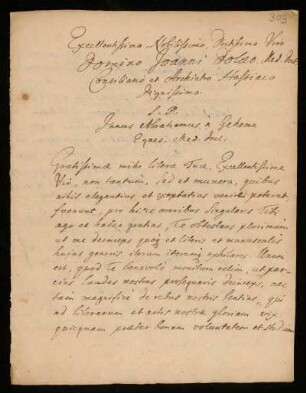 303
Excellentissimo, Nobilissimo, Doctissimo Viro
Domino Joanni Dolaeo, Med. Doct.
Consiliario et Archiatro Hassiaco
Dignissimo
S. P.
Janus Abrahamus à Gehema
Eques. Med. Doct.
Gratissimae mihi literae Tuae, Excellentissime
Vir, non tantum, sed et munera, quibus
nihil elegantius et exoptatius venire poterat,
fuerunt, pro hisce omnibus singulares Tibi
ago et habeo gratias, Te obtestans plurimum
ut me deinceps quoque et literis et munusculis
hujus generis iterum iterumque exhilares. Unum
est, quod Te benevole monitum velim, ut parcius
laudes nostras prosequaris deinceps, nec
tam magnifice de rebus nostris sentias, qui
ad literarum et artis nostrae gloriam vix
quicquam praeter bonam voluntatem et studium